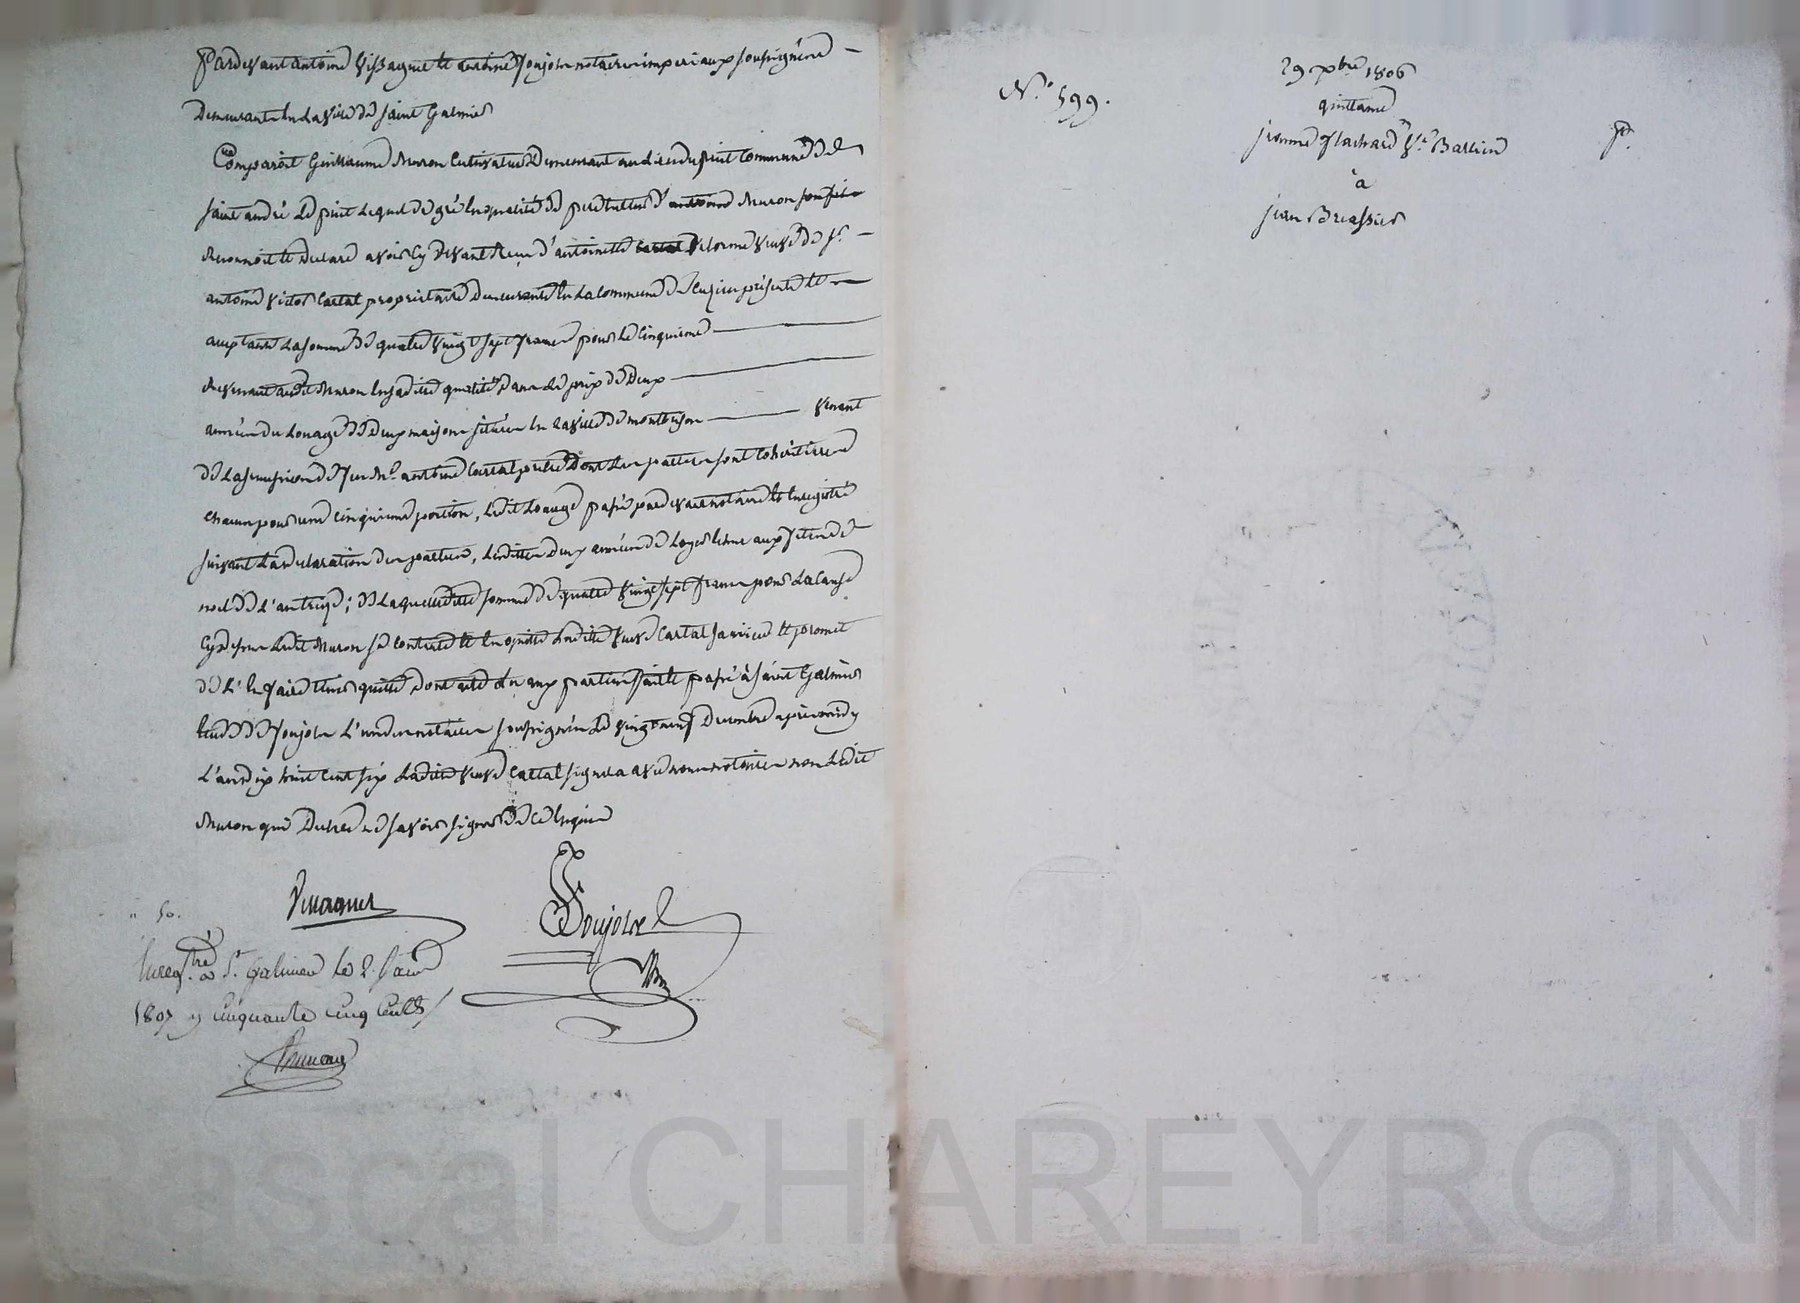 Pardevant antoine Vissaguet et antoine Joujou notaires imperiaux soussignés
Demeurants en la ville de saint Galmier
Comparoit Guillaume Muron Cultivateur Demeurant au lieu du puit Commune de
saint andré Le puit Lequel de gré en qualité de pere d'antoine Muron son fils
Reconnoit et Declare avoir cy devant Reçu d'antoinette Cartal Delorme veuve de Sr.
antoine victor Cartal proprietaire Demeurante en La Commune de présente et
acceptante La somme de quatre vingt sept francs pour le Cinquieme
Revenant audit Muron en sadite qualité dans Le prix de Deux
années du Louage de Deux maisons situées en La ville de montbrison venant
de La succession de feu Mr. antoine Cartal prêtre Dont Les parties sont Cohéritieres
Chacun pour une Cinquieme portion, Ledit Louage passé pardevant notaire et Enregistré
suivant La declaration des parties, Lesdittes Deux années de Loyer echus aux fêtes de
noel de L'an treize; de Laquelle ditte somme de quatre vingt sept francs pour La Cause
Cy dessus Ledit Muron se Contente et en quitte Laditte veuve Cartal sa niece et promet
de L'en faire tenir quitte, dont acte aux parties fait et passé à saint Galmier
Etude de Joujou L'un des notaires soussignés Le vingt neuf Decembre après midy
L'an dix huit Cent six Laditte veuve Cartal signera avec nous notaires non Ledit
Muron qui Declare ne savoir signer de Ce Enquis
Vissaguet
Joujou
50.
Enregtré a St. Galmier le 2. Janr
1807 Cinquante Cinq Cents
N.º 599.
29 Xbre 1806
quittance
jeanne flachard Ve. Ballien
à
jean Bressier
P.
Pascal CHAREYRON